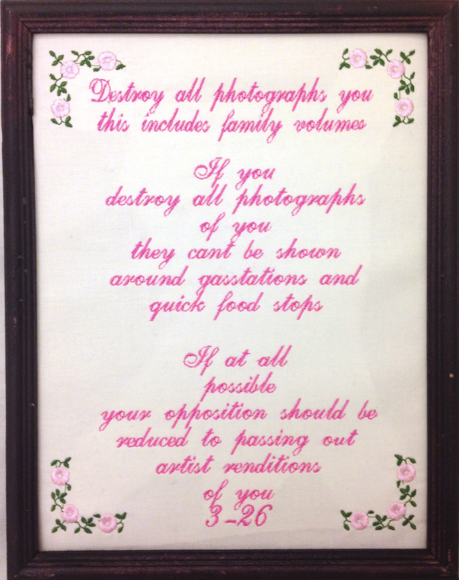 Destroy all photographs you
this includes family volumes
If you
destroy all photographs
of you
they cant be shown
around gasstations and
quick food stops
If at all
possible
your opposition should be
reduced to passing out
artist renditions
of you
3-26